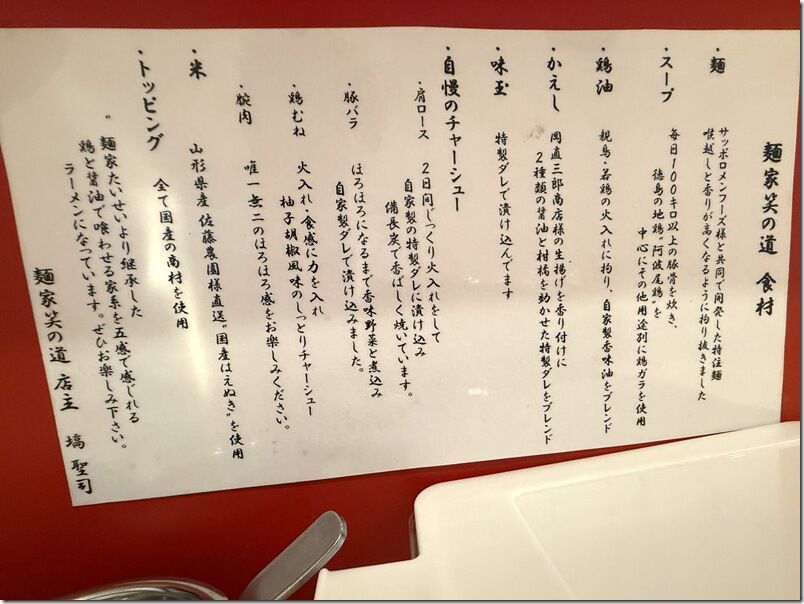 麺家笑の道 食材
・麺
サッポロメンフーズ様と共同で開発した特注麺
喉越しと香りが高くなるように拘り抜きました
・スープ
毎日100キロ以上の豚骨を炊き、
徳島の地鶏"阿波尾鶏"を
中心にその他用途別に鶏ガラを使用
・鶏油
親鳥・若鶏の火入れに拘り、自家製香味油をブレンド
・かえし
岡直三郎商店様の生揚げを香り付けに
2種類の醤油と柑橘を効かせた特製ダレをブレンド
・味玉
特製ダレで漬け込んでます
・自慢のチャーシュー
・肩ロース
2日間じっくり火入れをして
自家製の特製ダレに漬け込み
備長炭で香ばしく焼いています。
・豚バラ
ほろほろになるまで香味野菜と煮込み
自家製ダレで漬け込みました。
・鶏むね
火入れ・食感に力を入れ
柚子胡椒風味のしっとりチャーシュー
・腕肉
唯一無二のほろほろ感をお楽しみください。
・米
山形県産 佐藤農園様直送"国産はえぬき"を使用
・トッピング
全て国産の商材を使用
"麺家たいせいより継承した
鶏と醤油で喰わせる家系を五感で感じれる
ラーメンになっています。ぜひお楽しみ下さい。
麺家笑の道 店主 塙 聖司